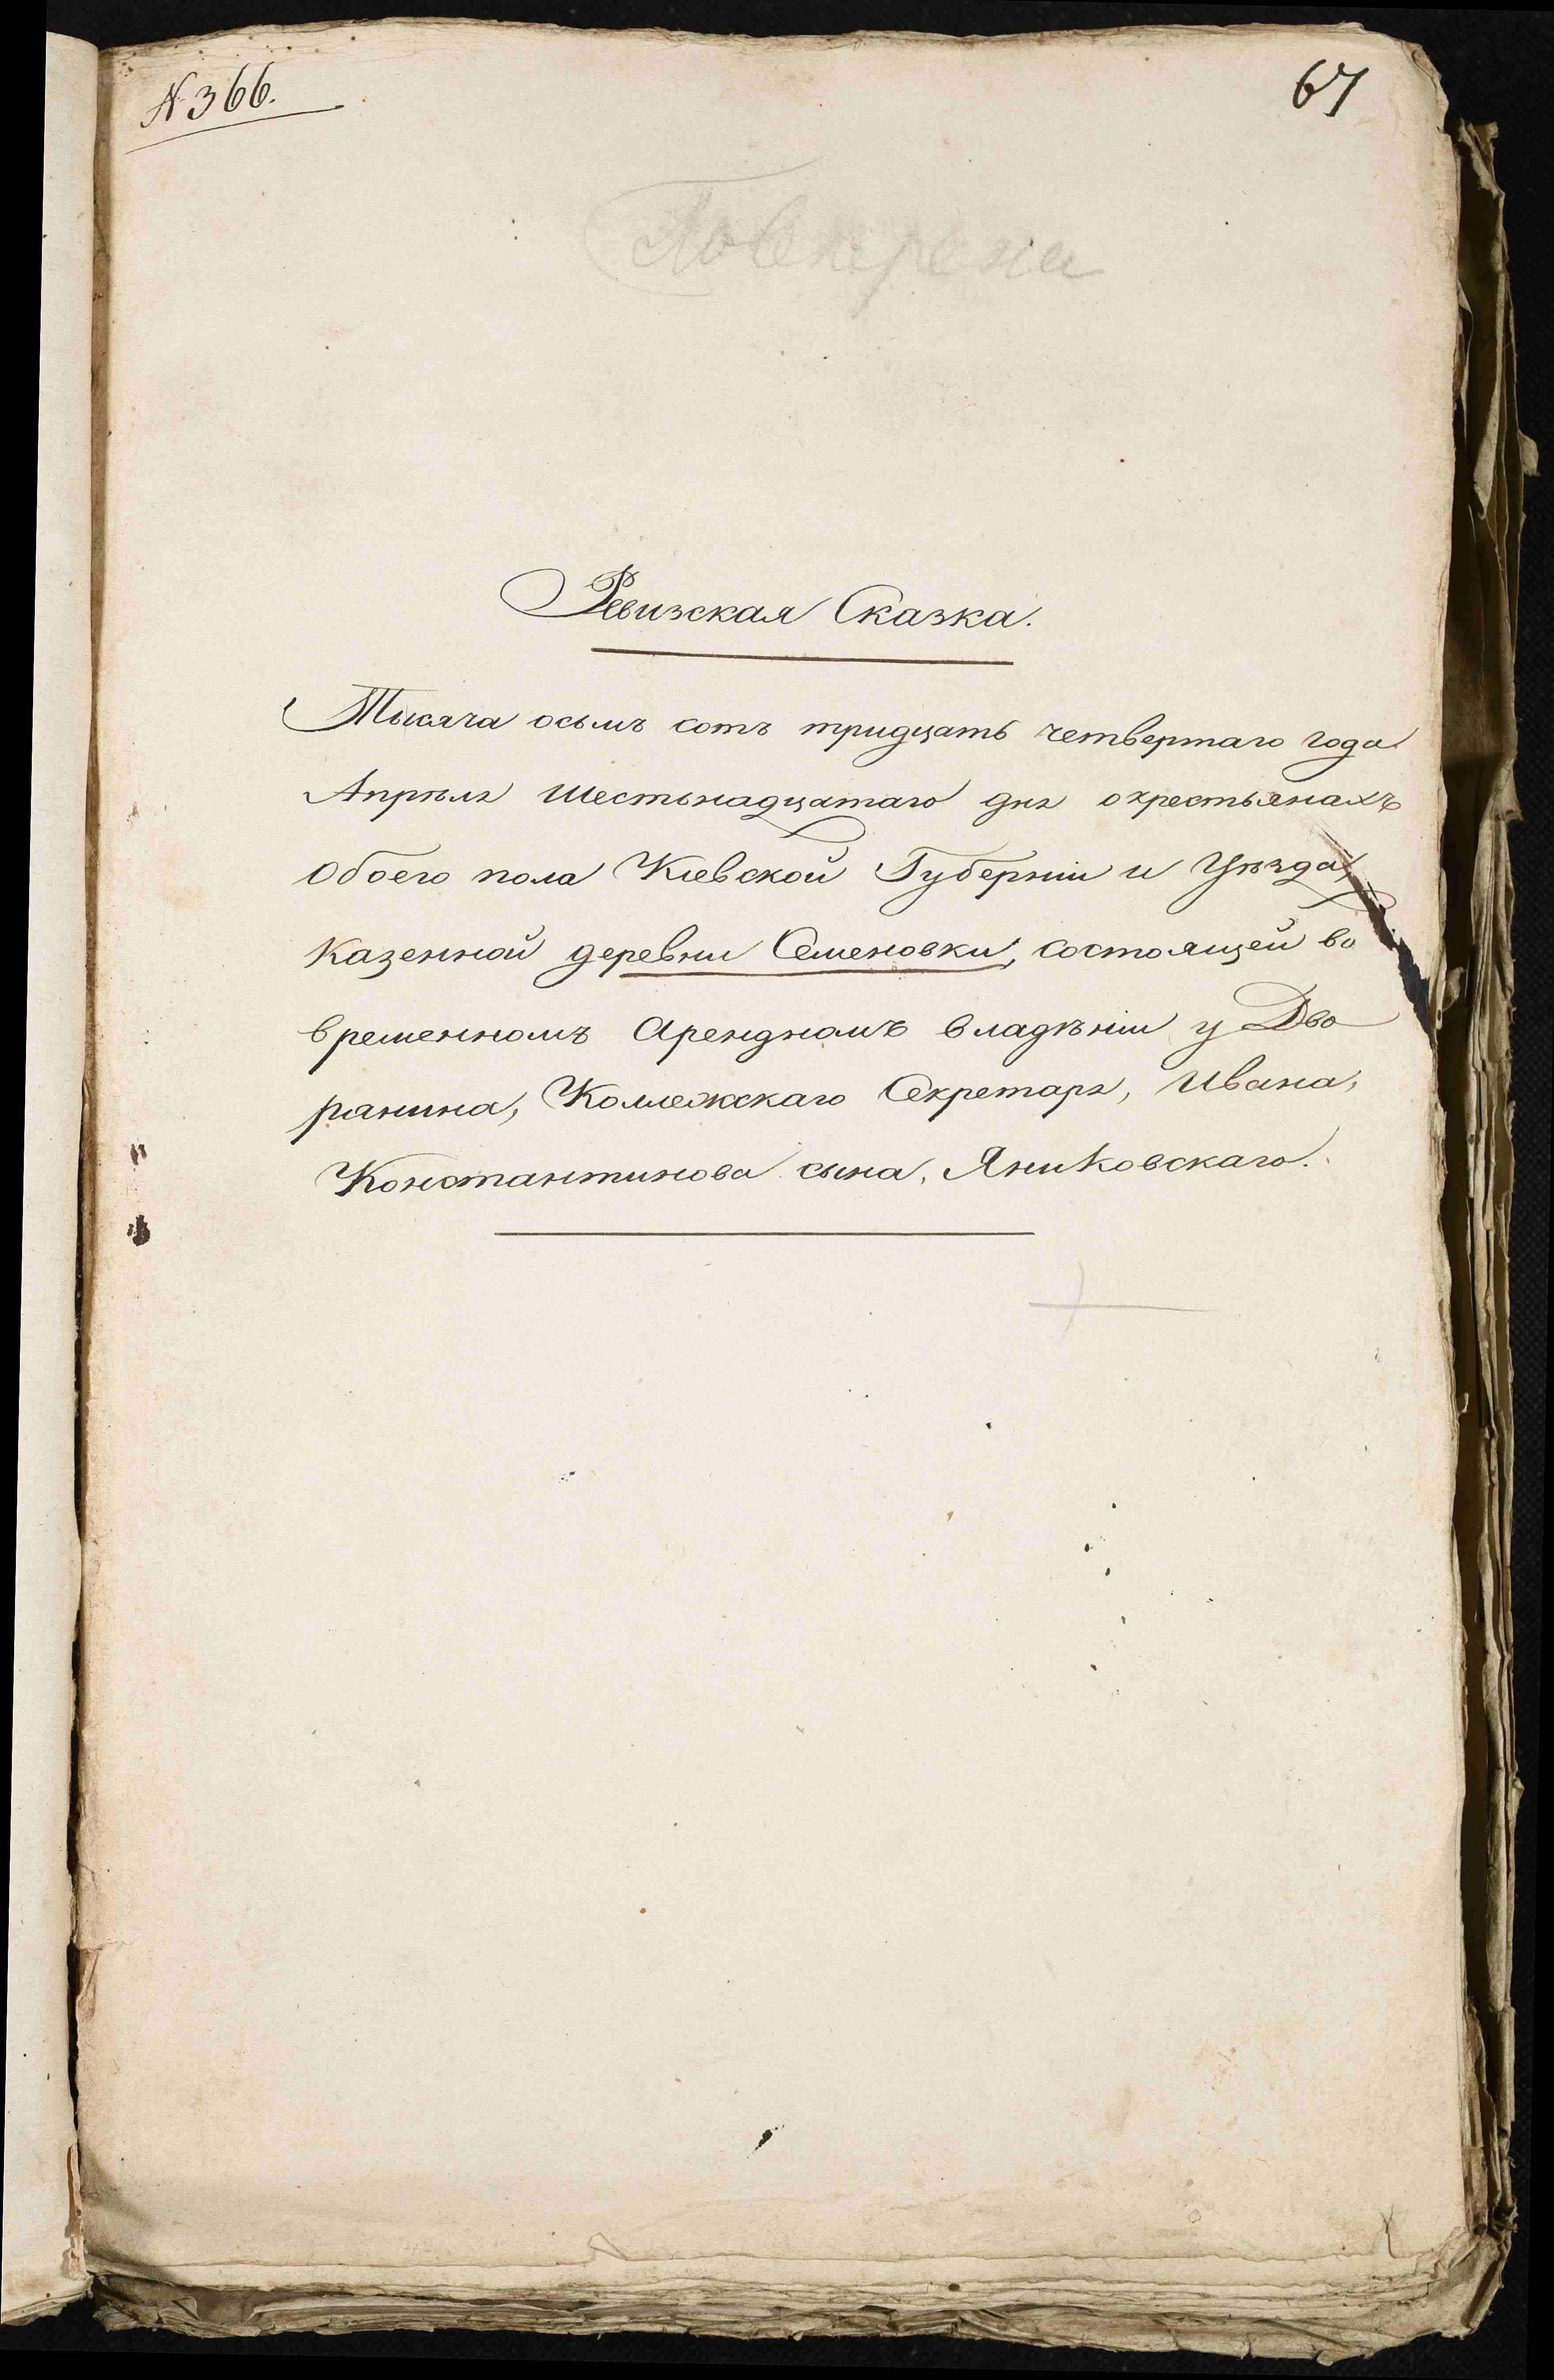 N 366.
67
Ревизская Сказка.
Тысяча осьмъ сотъ тридцать четвертаго года
Апрѣля шестьнадцатаго дня о крестьянахъ
обоего пола Кіевской Губерніи и Уѣзда,
казенной деревни Семеновки, состоящей во
временномъ Арендномъ владѣніи у Дво
рянина, Коллежскаго Секретаря, Ивана,
Константинова сына, Яниковскаго.